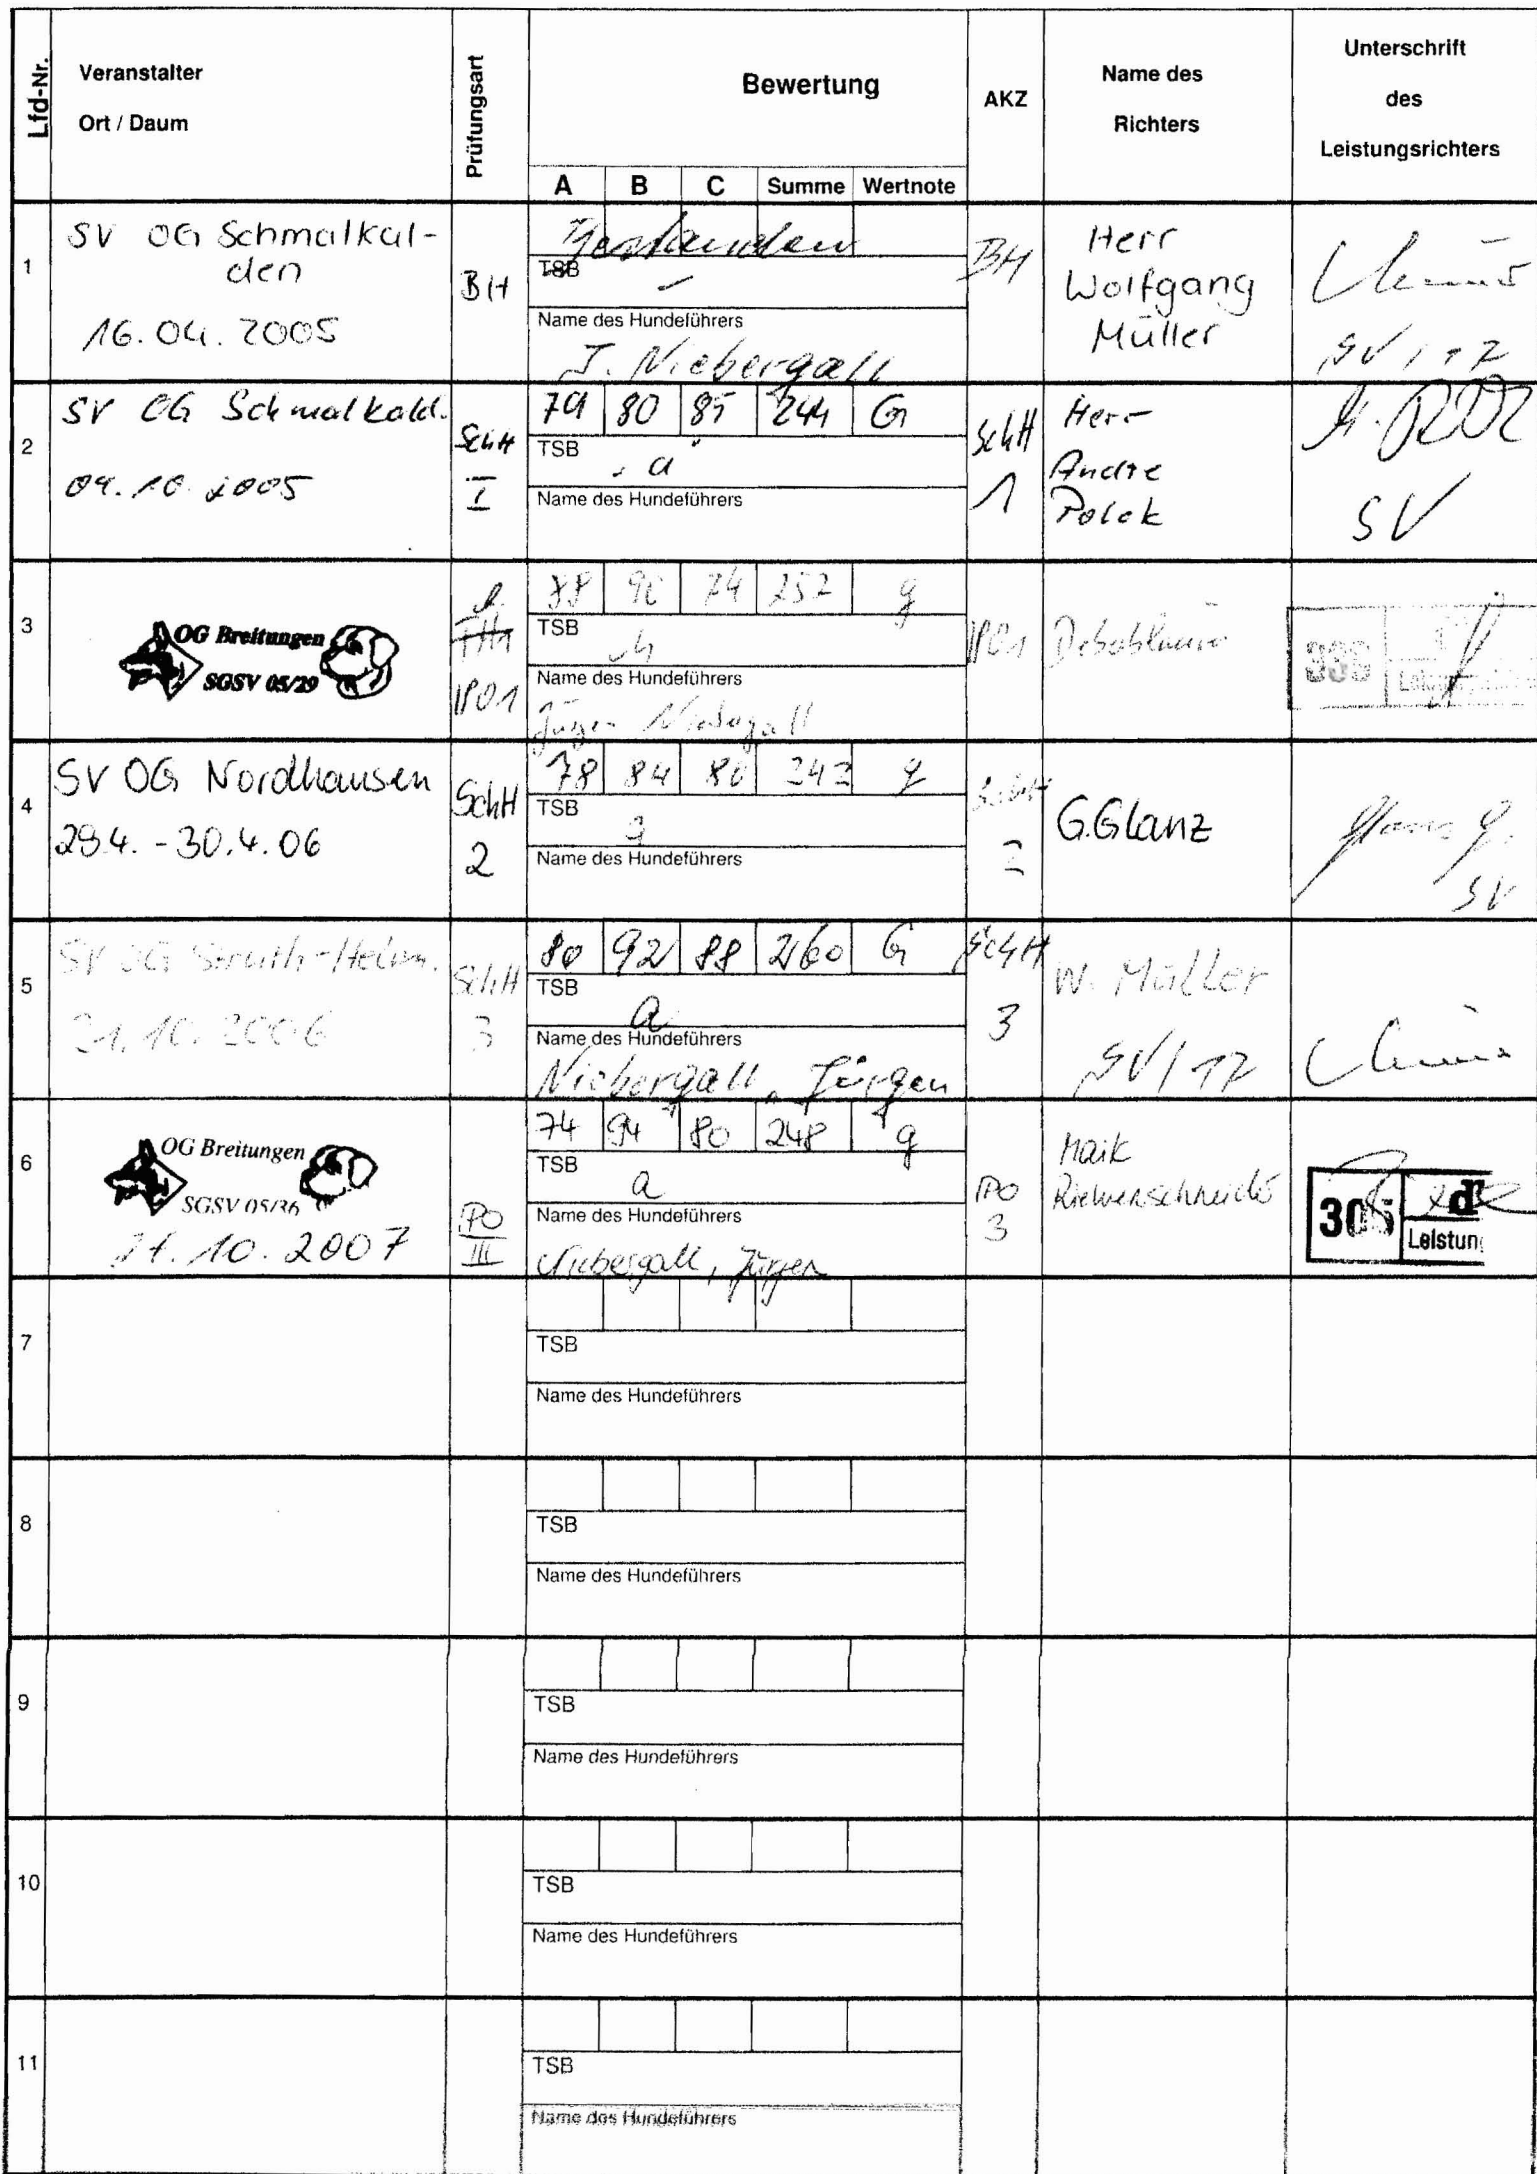 Lfd-Nr.
Veranstalter
Ort / Daum
Prüfungsart
Bewertung
A B C Summe Wertnote
AKZ
Name des
Richters
Unterschrift
des
Leistungsrichters
1
SV OG Schmalkal-
den
16.04.2005
BH
Bestanden
TSB -
Name des Hundeführers
J. Niebergall
BH
Herr
Wolfgang
Müller
SV / 17
2
SV OG Schmalkald.
09.10.2005
SchH
I
79 80 85 244 G
TSB a
Name des Hundeführers
SchH
1
Herr
Andre
Polok
SV
3
OG Breitungen
SGSV 05/29
FH1
IPO1
90 74 252 g
TSB
Name des Hundeführers
Jürgen Niebergall
IPO1
4
SV OG Nordhausen
29.4. - 30.4.06
SchH
2
78 84 80 242 g
TSB a
Name des Hundeführers
SchH
2
G.Glanz
SV
5
SV OG Struth-Helm.
21.10.2006
SchH
3
80 92 88 260 G
TSB a
Name des Hundeführers
Niebergall, Jürgen
SchH
3
W. Müller
SV / 17
6
OG Breitungen
SGSV 05/36
.10.2007
IPO
III
74 94 80 248 g
TSB a
Name des Hundeführers
Niebergall, Jürgen
IPO
3
Maik
305
Leistung
7
TSB
Name des Hundeführers
8
TSB
Name des Hundeführers
9
TSB
Name des Hundeführers
10
TSB
Name des Hundeführers
11
TSB
Name des Hundeführers